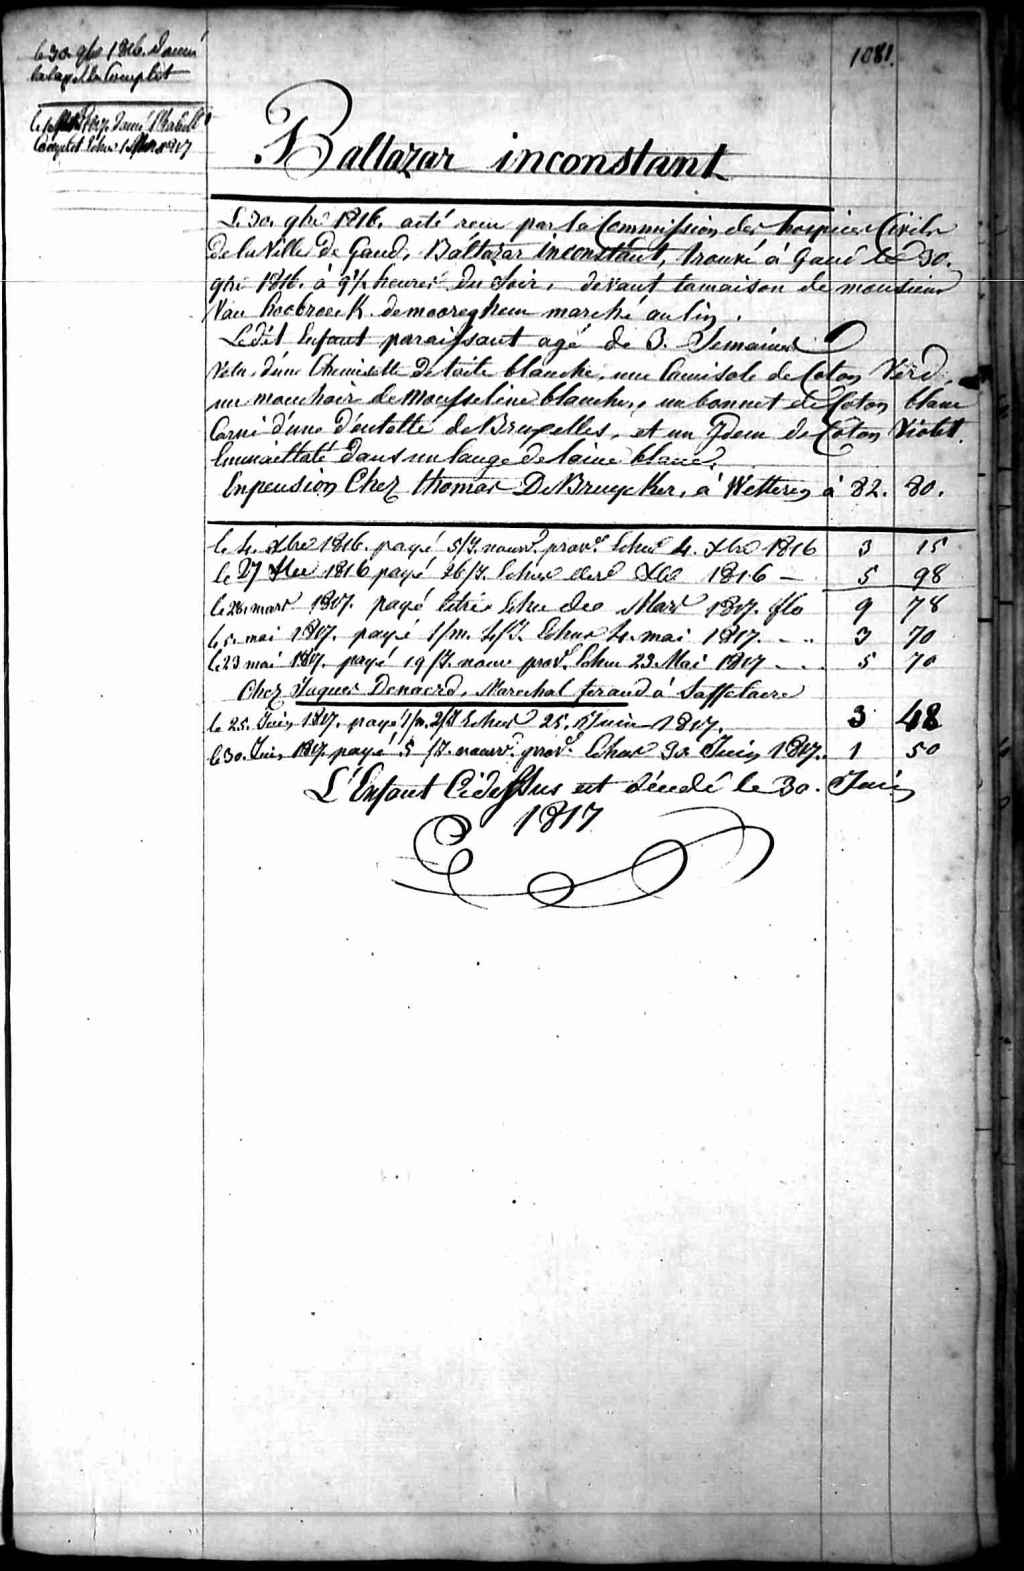 le 30. 9bre 1816. Donné
la layette Complet
1081.
Complet Echu 1817
Baltazar inconstant
Le 30. 9bre 1816. acté recu par la Commission des hospices Civils
de la Ville de Gand, Baltazar inconstant, trouvé à Gand le 30.
9bre 1816. à 9½ heures du Soir, devant la maison de monsieur
Van hoobroeck demooreghem marché au lin.
Ledit Enfant paraissant agé de 3. Semaines
Vetu d'une Chemisette de toile blanche, une Camisole de Coton Verd,
un mouchoir de mousseline blanche, un bonnet de Coton blanc
Garni d'une dentelle de Bruxelles, et un Idem de Coton Violet.
Emmailloté dans un lange de laine blanc.
En pension Chez thomas DeBruycker, à Wetteren à 82. 80.
le 4. Xbre 1816. payé 5/J. nourr. prov.e Echus 4. Xbre 1816 3 15
le 27 Xbre 1816 payé 26/J. Echus Xbre 1816 – 5 98
le 28. mars 1817. payé Echu Mars 1817. flo 9 78
le 5. mai 1817. payé 1/m. 4/J. Echus 4. mai 1817. - .. 3 70
le 23 mai 1817. payé 19/J. nourr prov.e Echu 23. Mai 1817 - .. 5 70
Chez Jaques Denaerd, Marechal ferand à Saffelaere
le 25. Juin 1817. payé 1/m. 2/J Echus 25. Juin 1817. 3 48
le 30. Juin 1817. payé 5/J. nourr. prov.e Echus 30. Juin 1817. 1 50
L'Enfant Cidessus est décedé le 30. Juin
1817